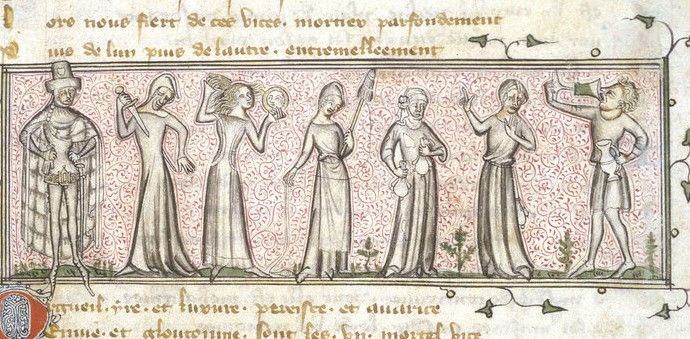 ors nous fiert de ces vices · mortier parfondement
uis de lun puis de lautre · entremelleement
Orgueil · yre · et luxure · peresce · et auarice
Enuie · et gloutonnie · sont les · vii · mortel vice